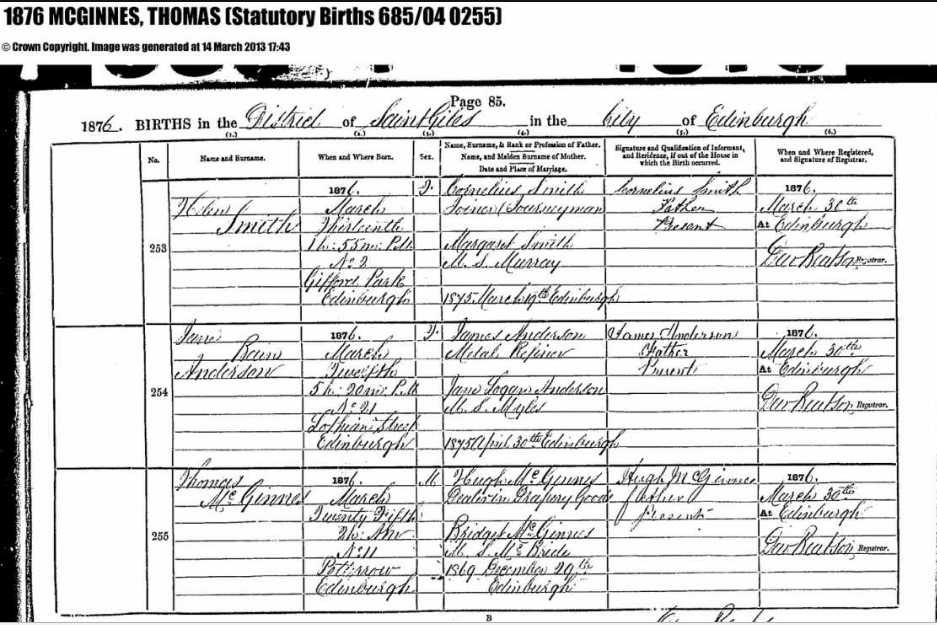 1876 MCGINNES, THOMAS (Statutory Births 685/04 0255)
© Crown Copyright. Image was generated at 14 March 2013 17:43
Page 85.
1876. BIRTHS in the District of Saint Giles in the City of Edinburgh
(1.) (2.) (3.) (4.) (5.) (6.)
No.
Name and Surname.
When and Where Born.
Sex.
Name, Surname, & Rank or Profession of Father.
Name, and Maiden Surname of Mother.
Date and Place of Marriage.
Signature and Qualification of Informant,
and Residence, if out of the House in
which the Birth occurred.
When and Where Registered,
and Signature of Registrar.
253
Helen
Smith
1876.
March
Thirteenth
1h. 55m. P.M.
No. 2
Gifford Park
Edinburgh
F.
Cornelius Smith
Joiner (Journeyman
Margaret Smith
M. S. Murray
1875 March 19th Edinburgh
Cornelius Smith
Father
Present
1876.
March 30th
At Edinburgh
Registrar.
254
Jane
Bain
Anderson
1876.
March
Twelfth
5h. 20m. P.M.
No. 21
Lothian Street
Edinburgh
F.
James Anderson
Metal Refiner
Jane Logan Anderson
M. S. Myles
1875 April 30th Edinburgh
James Anderson
Father
Present
1876.
March 30th
At Edinburgh
Registrar.
255
Thomas
McGinnes
1876.
March
Twenty Fifth
2h. AM
No. 11
Potterrow
Edinburgh
M
Hugh McGinnes
Dealer in Drapery Goods
Bridget McGinnes
M. S. McBride
1869 December 29th
Edinburgh
Hugh McGinnes
father
present
1876.
March 30th
At Edinburgh
Registrar.
B